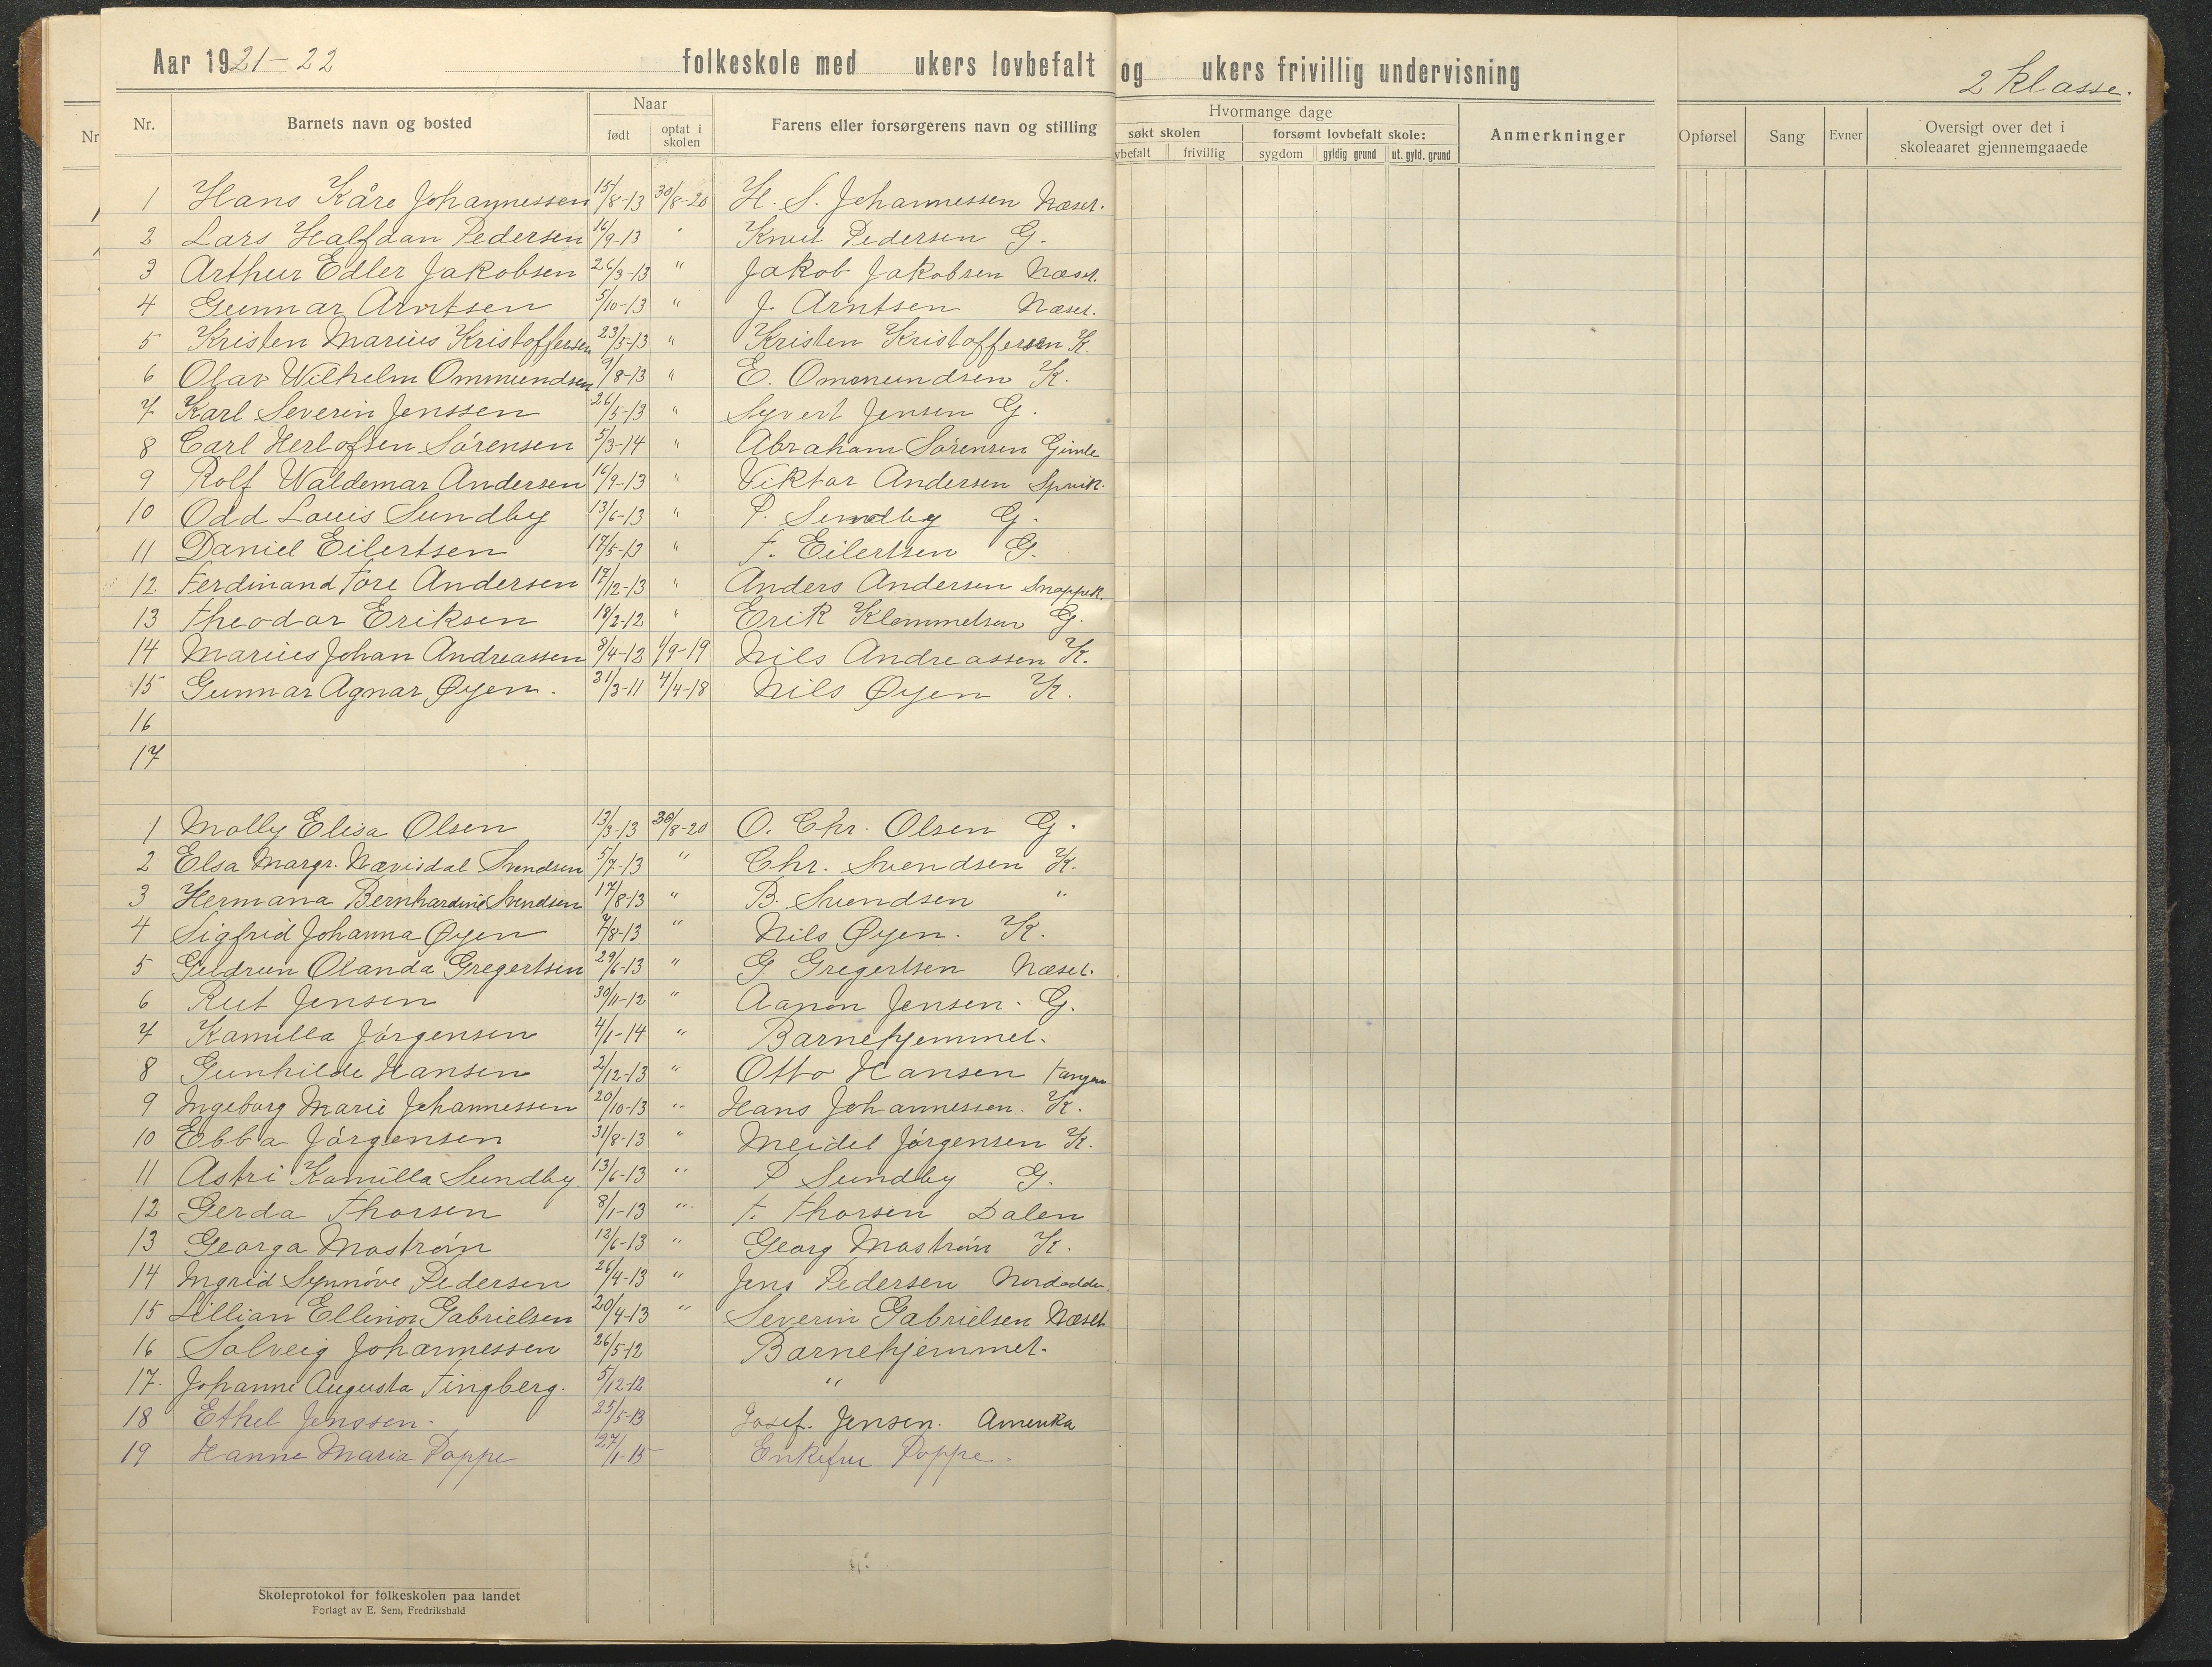 Aar 1921-22 folkeskole med ukers lovbefalt og ukers frivillig undervisning 2 Klasse.
Nr. Barnets navn og bosted Naar født optat i skolen Farens eller forsørgerens navn og stilling
Hvormange dage søkt skolen forsømt lovbefalt skole: Anmerkninger Opførsel Sang Evner Oversigt over det i skoleaaret gjennemgaaede
vbefalt frivillig sygdom gyldig grund ut. gyld. grund
Nr
1 Hans Kåre Johannessen 15/8-13 30/8-20 H. S. Johannessen Næset.
2 Lars Halfdan Pedersen 16/9-13 " Knut Pedersen G.
3 Arthur Edler Jakobsen 26/3-13 " Jakob Jakobsen Næset.
4 Gunnar Arntsen 5/10-13 " J. Arntsen Næset.
5 Kristen Marius Kristoffersen 23/5-13 " Kristen Kristoffersen K.
6 Olav Wilhelm Ommundsen 9/8-13 " E. Ommundsen K.
7 Karl Severin Jenssen 26/5-13 " Syvert Jensen G.
8 Carl Herlofsen Sörensen 5/3-14 " Abraham Sörensen Gimle
9 Rolf Waldemar Andersen 16/9-13 " Viktor Andersen
10 Odd Louis Sundby 13/6-13 " P. Sundby G.
11 Daniel Eilertsen 17/5-13 " T. Eilertsen G.
12 Ferdinand Tore Andersen 17/12-13 " Anders Andersen
13 Theodor Eriksen 18/2-12 " Erik Klemmetsen G.
14 Marius Johan Andreassen 8/4-12 1/9-19 Nils Andreassen K.
15 Gunnar Agnar Øyen. 31/3-11 4/4-18 Nils Øyen K.
16
17
1 Molly Elisa Olsen 13/3-13 30/8-20 O. Chr. Olsen G.
2 Elsa Margr. Nævisdal Svendsen 5/7-13 " Chr. Svendsen K.
3 Hermana Bernhardine Svendsen 17/8-13 " B. Svendsen "
4 Sigfrid Johanna Øyen 7/8-13 " Nils Øyen. K.
5 Guldrun Olanda Gregertsen 29/6-13 " G. Gregertsen Næset.
6 Rut Jensen 30/11-12 " Aanon Jensen. G.
7 Kamilla Jörgensen 4/1-14 " Barnehjemmet.
8 Gunhilde Hansen 2/12-13 " Otto Hansen Tangen
9 Ingeborg Marie Johannessen 20/10-13 " Hans Johannessen. K.
10 Ebba Jörgensen 31/8-13 " Meidel Jörgensen K.
11 Astri Kamilla Sundby. 13/6-13 " P Sundby G.
12 Gerda Thorsen 8/1-13 " T. Thorsen Dalen
13 Georga Moström 12/6-13 " Georg Moström K.
14 Ingrid Synnöve Pedersen 26/4-13 " Jens Pedersen Nordodden
15 Lillian Ellinor Gabrielsen 20/4-13 " Severin Gabrielsen Næset
16 Solveig Johannessen 26/5-12 Barnehjemmet.
17. Johanne Augusta Tingberg. 5/12-12 "
18 Ethel Jenssen. 25/5-13 Josef. Jensen. Amerika
19 Hanne Maria Poppe 27/1-15 Enkefru Poppe.
Skoleprotokol for folkeskolen paa landet
Forlagt av E. Sem, Fredrikshald